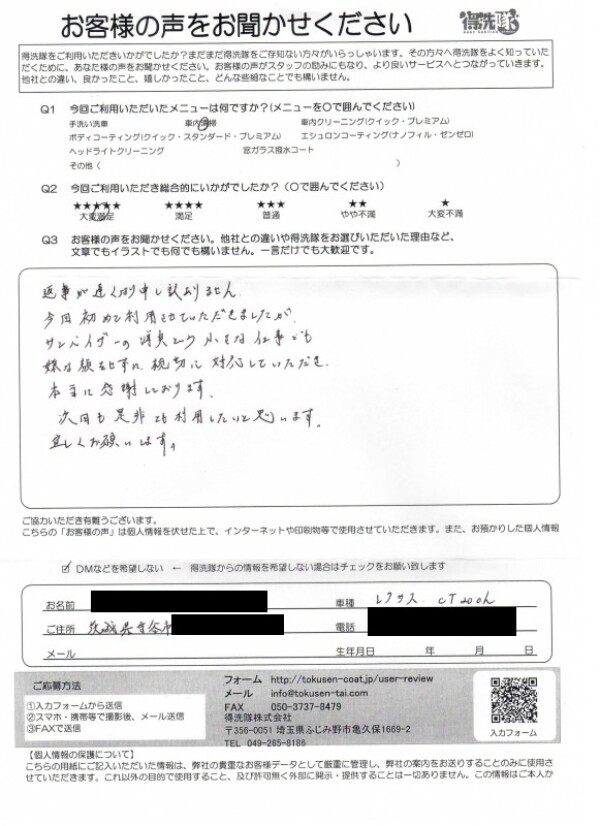 お客様の声をお聞かせください
得洗隊
得洗隊をご利用いただきいかがでしたか？まだまだ得洗隊をご存知ない方々がいらっしゃいます。その方々へ得洗隊をよく知っていた
だくために、あなた様の声をお聞かせください。お客様の声がスタッフの励みにもなり、より良いサービスへとつながっていきます。
他社との違い、良かったこと、嬉しかったこと、どんな些細なことでも構いません。
Q1 今回ご利用いただいたメニューは何ですか？(メニューを〇で囲んでください)
手洗い洗車 車内清掃 車内クリーニング(クイック・プレミアム)
ボディコーティング(クイック・スタンダード・プレミアム) エシュロンコーティング(ナノフィル・ゼンゼロ)
ヘッドライトクリーニング 窓ガラス撥水コート
その他（ ）
Q2 今回ご利用いただき総合的にいかがでしたか？（〇で囲んでください）
★★★★★ ★★★★ ★★★ ★★ ★
大変満足 満足 普通 やや不満 大変不満
Q3 お客様の声をお聞かせください。他社との違いや得洗隊をお選びいただいた理由など、
文章でもイラストでも何でも構いません。一言だけでも大歓迎です。
返事が遅くなり申し訳ありません。
今回初めて利用させていただきましたが、
サンバイザーの消臭という小さな仕事でも
嫌な顔をせずに、親切に対応していただき、
本当に感謝しております。
次回も是非とも利用したいと思います。
宜しくお願いします。
ご協力いただき有難うございます。
こちらの「お客様の声」は個人情報を伏せた上で、インターネットや印刷物等で使用させていただきます。また、お預かりした個人情報
☑ DMなどを希望しない ← 得洗隊からの情報を希望しない場合はチェックをお願い致します
お名前 車種 レクサス CT200h
ご住所 茨城県守谷市 電話
メール 生年月日 年 月 日
ご応募方法
①入力フォームから送信
②スマホ・携帯等で撮影後、メール送信
③FAXで送信
フォーム http://tokusen-coat.jp/user-review
メール info@tokusen-tai.com
FAX 050-3737-8479
得洗隊株式会社
〒356-0051 埼玉県ふじみ野市亀久保1669-2
TEL 049-265-8186
入力フォーム
【個人情報の保護について】
こちらの用紙にご記入いただいた情報は、弊社の貴重なお客様データとして厳重に管理し、弊社の案内をお送りすることのみに使用さ
せていただきます。これ以外の目的で使用すること、及び許可無く外部に開示・提供することは一切ありません。この情報はご本人か